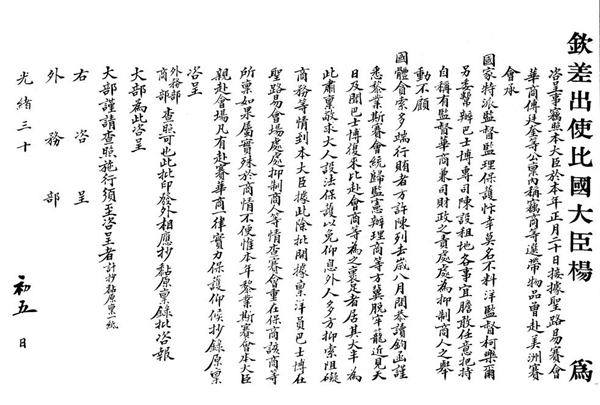 欽差出使比國大臣楊 為
咨呈事竊照本大臣於本年正月二十日接據聖路易賽會
華商傅廷奎等公稟內稱竊商等選帶物品曾赴美洲賽
會承
國家特派監督監理保護忭幸莫名不料洋監督柯樂爾
另委幫辦巴士博專司陳設租地各事宜膽敢任意把持
自稱有監督華商兼司財政之責處處為抑制商人之舉
動不顧
國體會索多端行賄者方許陳列去歲八月間恭讀鈞函謹
悉黎業斯賽會統歸監憲辦理商等方冀脫牢籠近見天
日及聞巴士博復来比赴會商等為之裹足者居其大半為
此肅稟敬求大人設法保護以免仰息外人多方抑索阻礙
商務等情到本大臣據此除批開據稟洋員巴士博在
聖路易會場處處抑制商人等情查賽會重在保商該商等
所稟如果屬實殊於商情不便惟本年黎業斯賽會本大臣
親赴會場凡有赴賽華商一律實力保護仰候抄錄原稟
咨呈
外務部商部查照可也此批印發外相應抄黏原稟錄批咨報
大部為此咨呈
大部謹請查照施行須至咨呈者 計抄黏原稟一紙
右咨呈
外務部
光緒三十 初五日